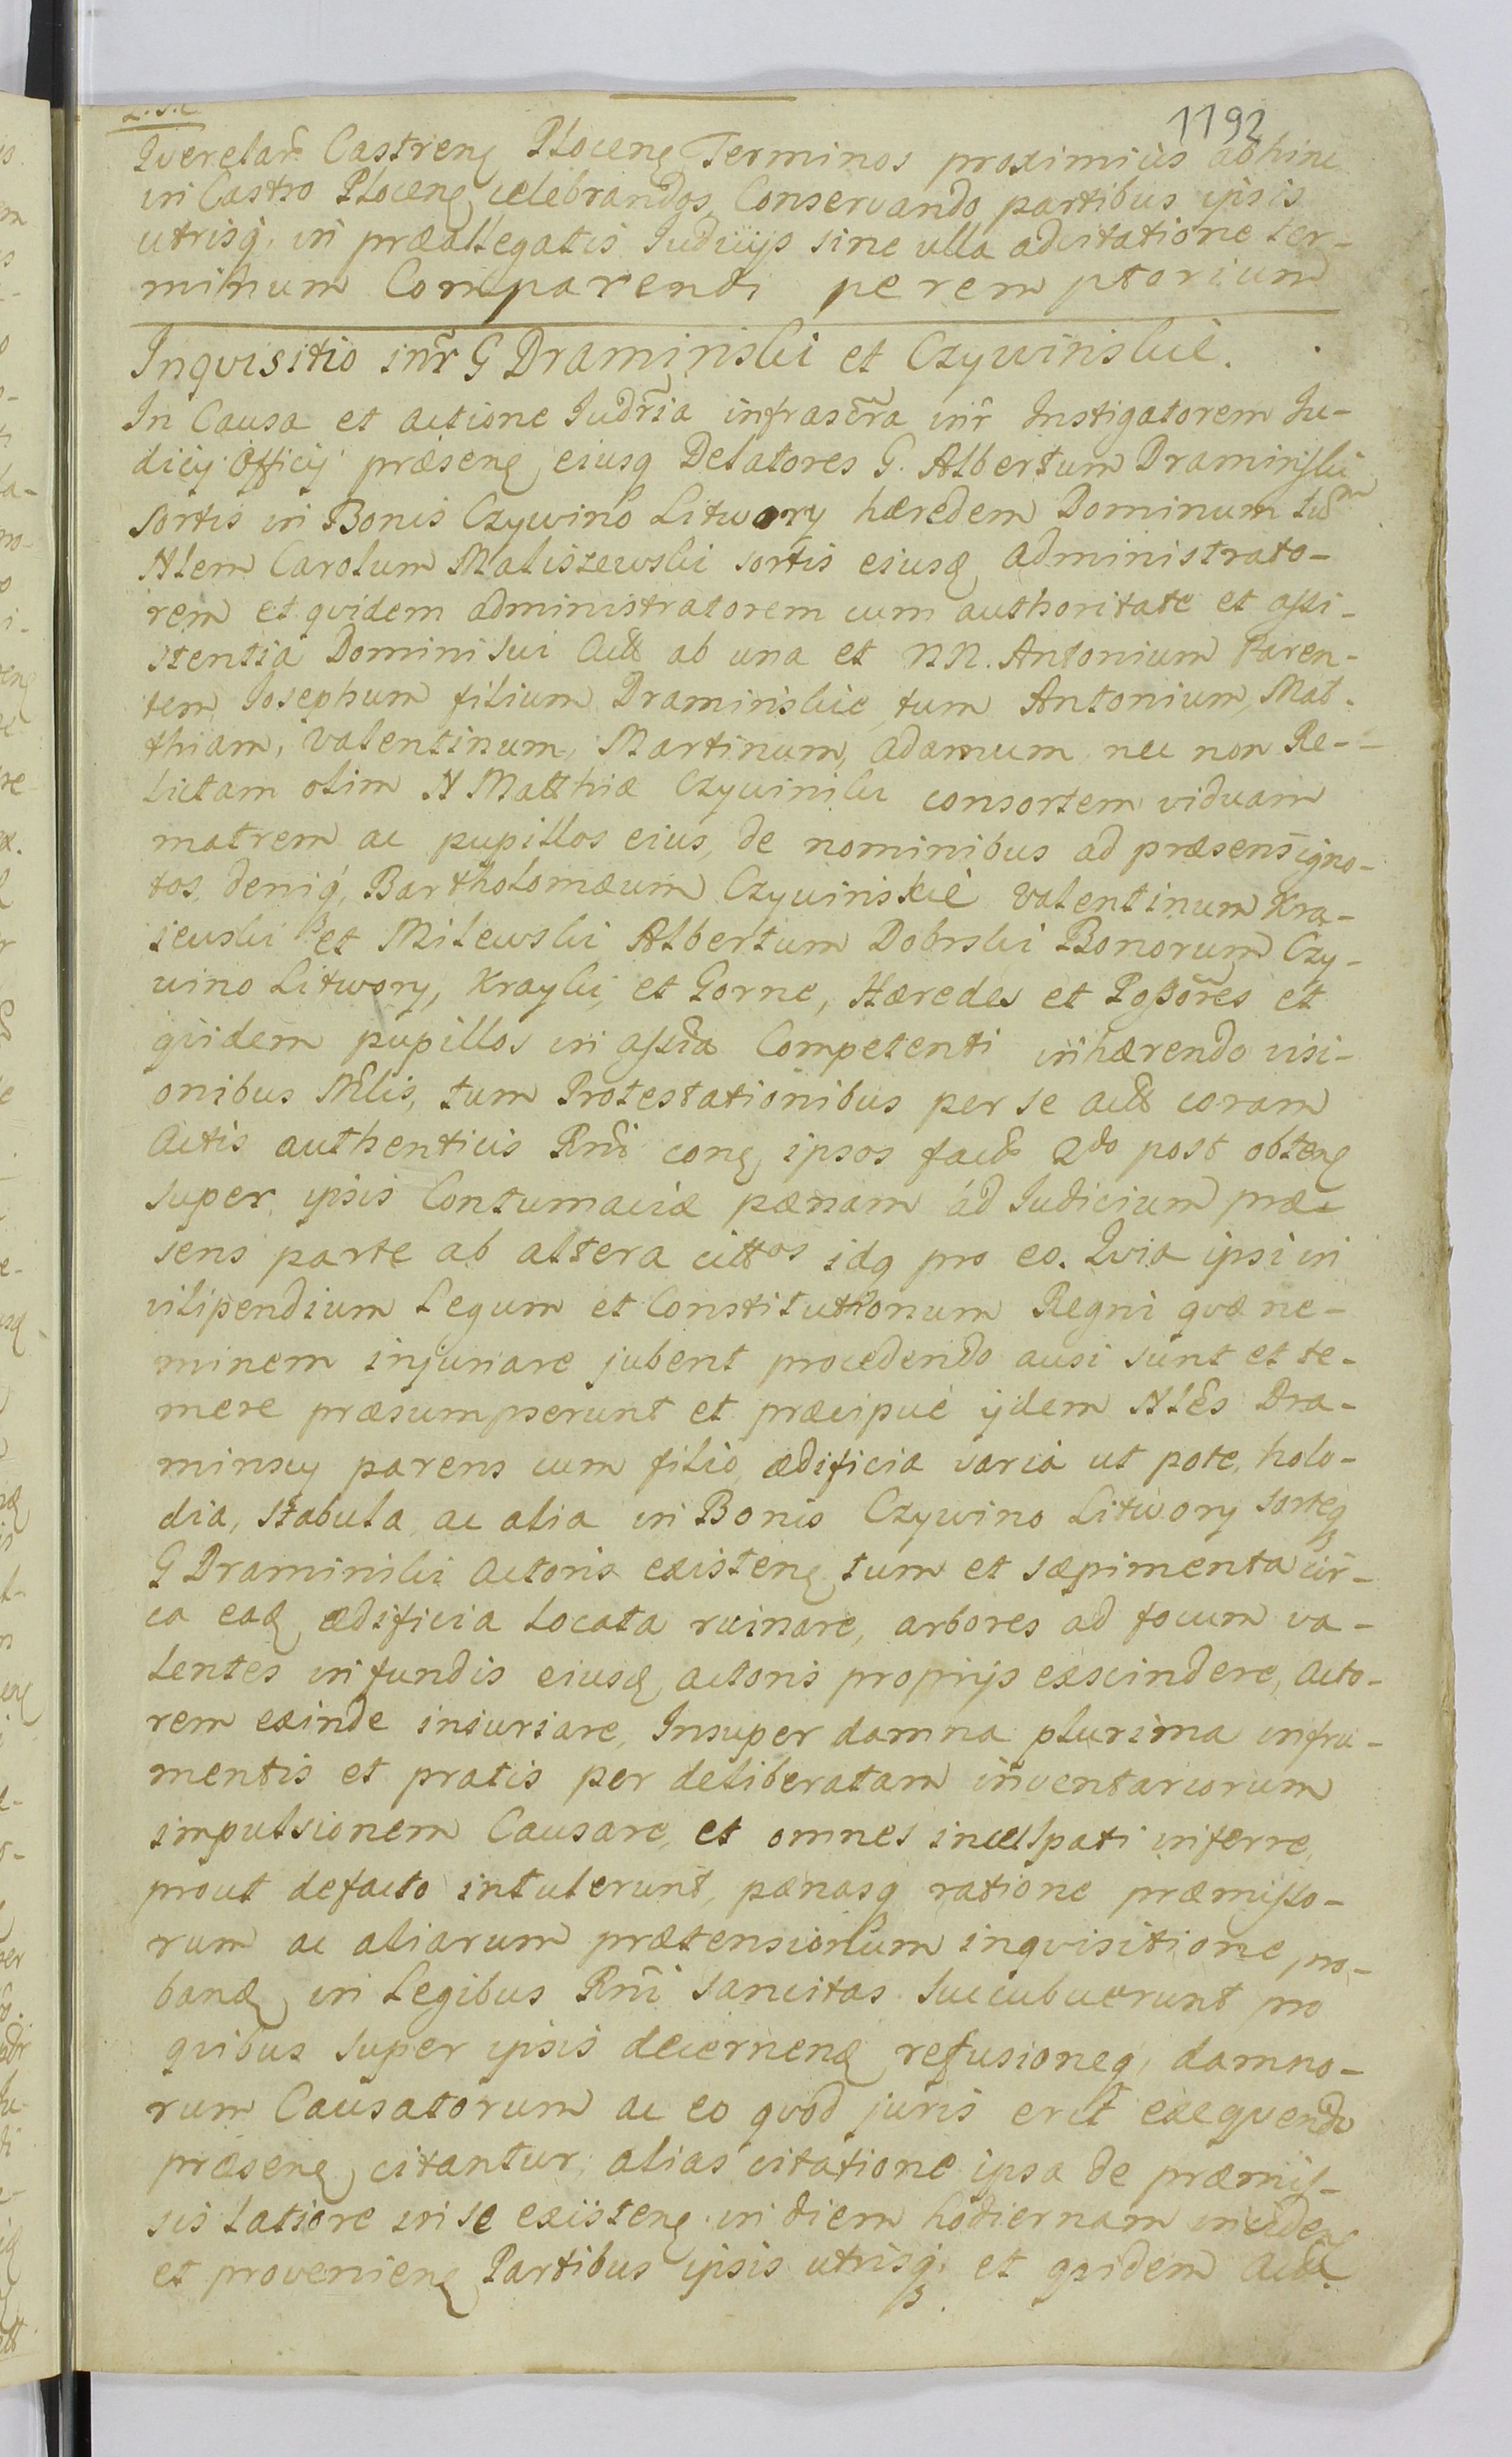 1192
Qverelar̃ Castrenȩ Plocenȩ Terminos proximiùs abhinc
in Castro Plocenȩ celebrandos, Conservando partibus ipsis
utrisq̨, in præallegatis Iudicijs sine ulla adcitatione ter-
minum Comparendi peremptorium
Inqvisitio inr̃ G Draminski et Czywinskie.
In Causa et actione Iudr̃ia infrascr̃a inr̃ Instigatorem Iu-
dicij Officij præsenȩ, eiusq Delatores G. Albertum Draminski
sortis in Bonis Czywino Litwory hæredem Dominum tũ
Nlem Carolum Maliszewski sortis eiusd administrato-
rem et qvidem administratorem cum authoritate et assi-
stentia Domini sui Actt ab una et NN. Antonium Paren-
tem, Iosephum filium Draminskie tum Antonium, Mat-
thiam, Valentinum, Martinum, Adamum nec non Re-
lictam olim N Matthiæ Czywinski consortem viduam
matrem ac pupillos eius, de nominibus ad præsens igno-
tos, deniq̨, Bartholomæum Czywinskie Valentinum Kra-
jewski et Milewski Albertum Dobrski Bonorum Czy-
wino Litwory, Krayki, et Gorne, Hæredes et Poßõres et
qvidem pupillos in assia Competenti inhærendo visi-
onibus Mlis, tum Protestationibus per se actt coram
Actis authenticis Rni conȩ ipsos factt 2do post obtenȩ
super ipsis Contumaciæ pænam ad Iudicium præ-
sens parte ab altera cittos idq pro eo. Qvia ipsi in
vilipendium Legum et Constitutionum Regni qvæ ne-
minem injuriare jubent procedendo ausi sunt et te-
mere præsumpserunt et præcipuè ijdem Nles Dra-
minscy parens cum filio, ædificia varia ut pote, holo-
dia, stabula, ac alia in Bonis Czywino Litwory sorteq
G Draminski Actoris existenȩ, tum et sæpimenta cir-
ca ead ædificia locata ruinare, arbores ad focum va-
lentes in fundis eiusd actoris proprijs exscindere, Acto-
rem exinde iniuriare, Insuper damna plurima in fru-
mentis et pratis per deliberatam inventariorum
impulsionem Causare, et omnes inculpati inferre,
prout defacto intulerunt, pænasq ratione præmisso-
rum ac aliarum prætensionum inqvisitione pro-
band in Legibus Rni sancitas succubuerunt pro
qvibus super ipsis decernend refusioneq, damno-
rum Causatorum ac eo qvod juris erit exeqvendo
præsenȩ citantur, alias citatione ipsa de præmis-
sis latiore in se existenȩ, in diem hodiernam inciden
et provenienȩ Partibus ipsis utrisq̨, et qvidem Actt